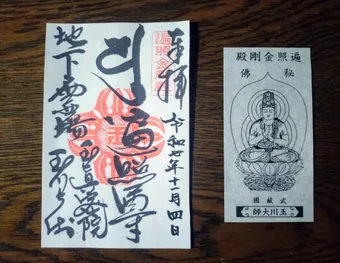 奉拝
令和七年十一月四日
遍照金剛
地下霊場 玉眞密院
玉川大師
殿剛金照遍
佛秘
國藏武
師大川玉